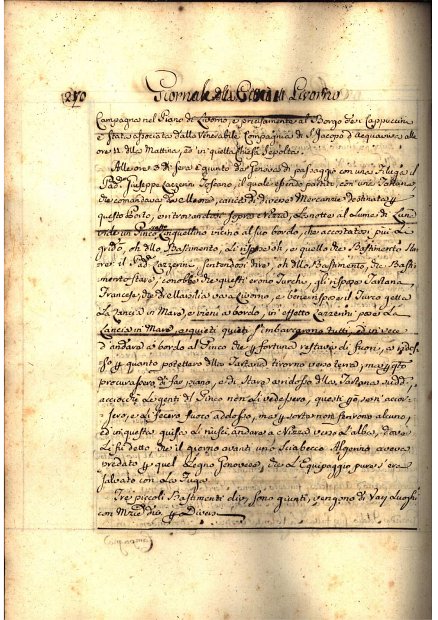 270 Giornale della Città di Livorno
Campagna nel Piano di Livorno, e precisamente al Borgo de Cappuccini
è stata associata dalla Venerabile Compagnia di S. Jacopo d'Acquaviva alle
ore 11 della Mattina, ed in quella Chiesa Sepolta.
Alle ore 3 di sera è giunto da Genova di passaggio con una Filuga il
Pad. Giuseppe Cazzerini Toscano, il quale essendo partito con una Tartana
che comandava da , carica di diverse Mercanzie destinata per
questo Porto, e ritrovandosi sopra Nizza, la notte al Lume di Luna
vidde un Pinco vicino al suo bordo, che accostatosi più Le
gridò, oh della Bastimento, Li rispose oh, e quello che Bastimento
il Pad. Cazzerini, sentendosi dire, oh della Bastimento, che Basti
mento stare, conobbe che questi erono Turchi, gli rispose Tartana
Francese, che di Marsilia va a Livorno, e bene rispose il Turco getta
La Lancia in Mare, e vieni a bordo, in effetto Cazzerini pose La
Lancia in Mare, e quieti quieti s'imbarcarono tutti, ed in vece
d'andare a bordo al Pinco che per fortuna restava di fuori, a ridos
so per quanto potettero della Tartana tirorno verso terra, ma per quanto
procurassero di far piano, e di stare a ridosso della Tartana
acciocchè Le genti del Pinco non Li vedessero, questi già s'erano accor-
si, e Li fecero fuoco addosso, ma per sorte non ferirono alcuno,
ed in questa guisa Li riuscì andare a Nizza verso L'alba, dove
Li fu detto che il giorno avanti uno Sciabecco Algerino aveva
predato per quel Legno Genovese, che L'Equipaggio pure s'era
salvato con La fuga.
Tre piccoli Bastimenti div. sono giunti, vengono di Varj Luoghi
con Mzie div. per Diversi